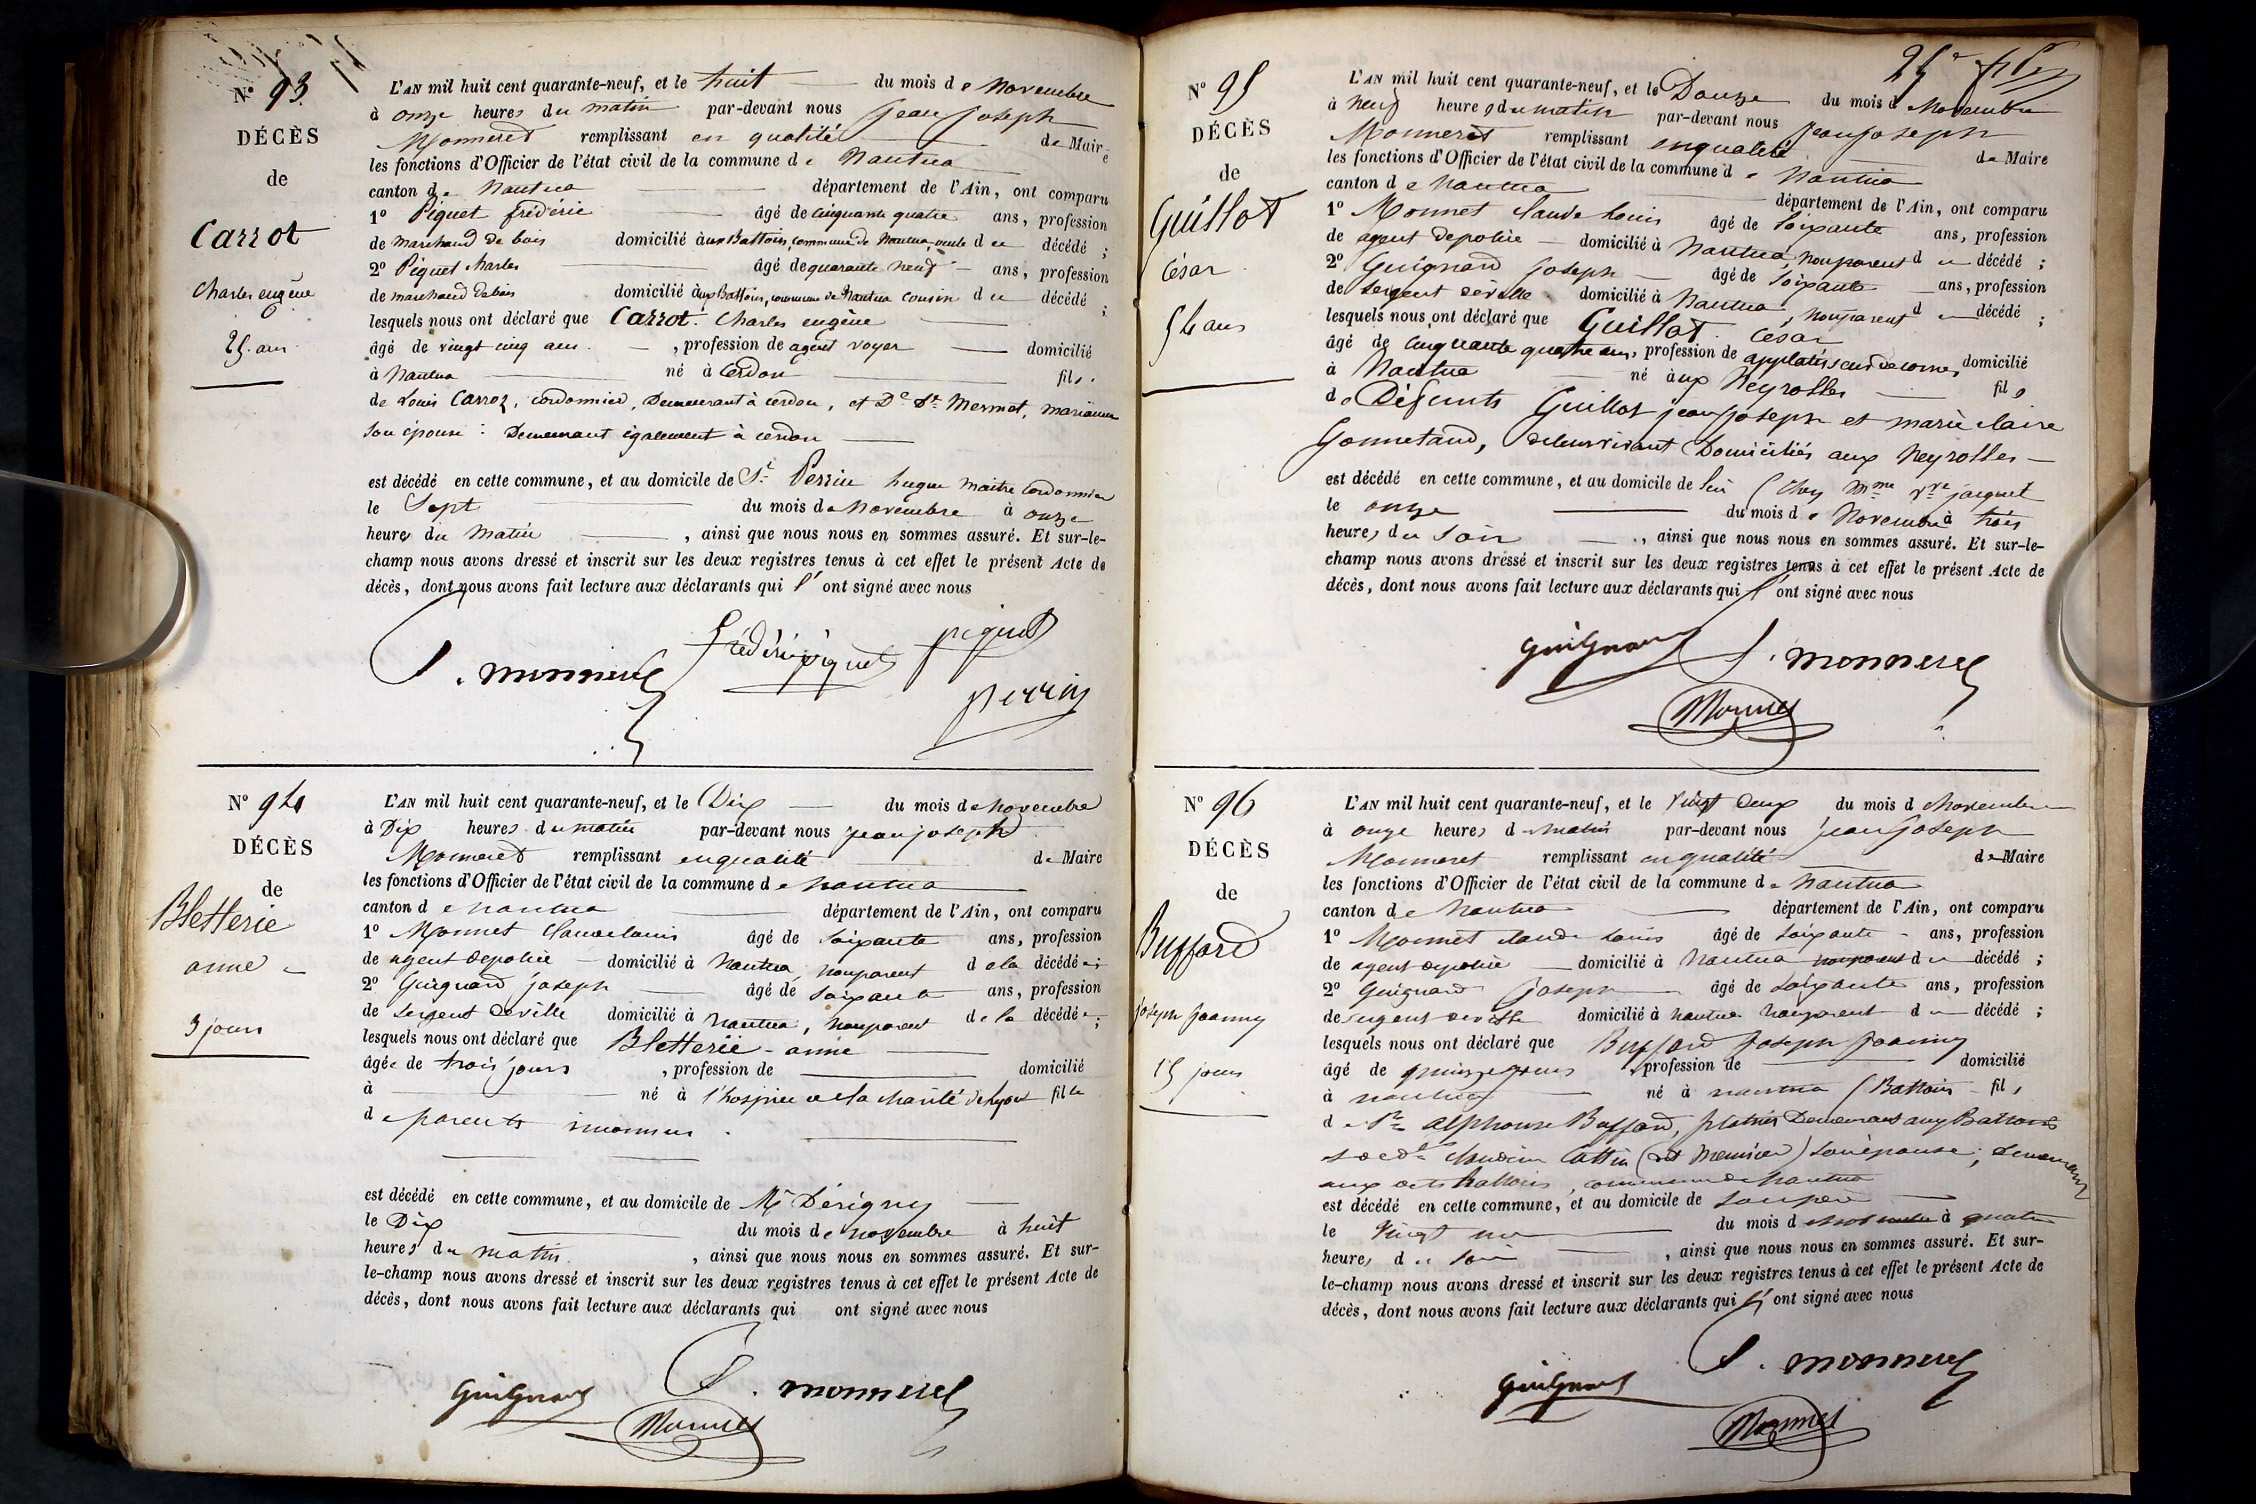 N° 93
DÉCÈS
de
Carrot
Charles eugène
25. ans
L'AN mil huit cent quarante-neuf, et le huit du mois de Novembre
à onze heures du matin par-devant nous jean joseph
Monneret remplissant en qualité de Maire
les fonctions d'Officier de l'état civil de la commune de Nantua
canton de Nantua département de l'Ain, ont comparu
1° Piquet frédéric âgé de cinquante quatre ans, profession
de marchand de bois domicilié aux Battoirs, commune de Nantua, oncle du décédé ;
2° Piquet charles âgé de quarante neuf ans, profession
de marchand de bois domicilié aux Battoirs, commune de Nantua cousin du décédé ;
lesquels nous ont déclaré que Carrot. Charles eugène
âgé de vingt cinq ans. , profession de agent voyer domicilié
à Nantua né à Cerdon fils.
de Louis Carroz, cordonnier, Demeurant à cerdon, et De Dt Mermet, marianne
son épouse : Demeurant également à cerdon
est décédé en cette commune, et au domicile de Sr Perrin hugue maitre cordonnier
le Sept du mois de Novembre à onze
heures du Matin , ainsi que nous nous en sommes assuré. Et sur-le-
champ nous avons dressé et inscrit sur les deux registres tenus à cet effet le présent Acte de
décès, dont nous avons fait lecture aux déclarants qui l' ont signé avec nous
J. monneret frédéric piquet piquet
perrin
N° 94
DÉCÈS
de
Bletterie
anne
3 jours
L'AN mil huit cent quarante-neuf, et le Dix du mois de Novembre
à Dix heures du matin par-devant nous jean joseph
Monneret remplissant en qualité de Maire
les fonctions d'Officier de l'état civil de la commune de Nantua
canton de Nantua département de l'Ain, ont comparu
1° Monnet Claude Louis âgé de soixante ans, profession
de agent de police domicilié à Nantua, non parent de la décédée ;
2° Guignard joseph âgé de soixante ans, profession
de sergent de ville domicilié à Nantua, non parent de la décédée ;
lesquels nous ont déclaré que Bletterie - anne
âgée de trois jours , profession de domicilié
à né à l'hospice de la charité de Lyon fille
de parents inconnus.
est décédé en cette commune, et au domicile de Mr Dérigny
le Dix du mois de novembre à huit
heures du matin , ainsi que nous nous en sommes assuré. Et sur-
le-champ nous avons dressé et inscrit sur les deux registres tenus à cet effet le présent Acte de
décès, dont nous avons fait lecture aux déclarants qui ont signé avec nous
Guignard J. monneret
Monnet
25e
N° 95
DÉCÈS
de
Guillot
César
54 ans
L'AN mil huit cent quarante-neuf, et le Douze du mois de Novembre
à neuf heures du matin par-devant nous jean joseph
Monneret remplissant en qualité de Maire
les fonctions d'Officier de l'état civil de la commune de Nantua
canton de Nantua département de l'Ain, ont comparu
1° Monnet claude louis âgé de soixante ans, profession
de agent de police domicilié à Nantua, non parent du décédé ;
2° Guignard joseph âgé de soixante ans, profession
de sergent de ville domicilié à Nantua, non parent du décédé ;
lesquels nous ont déclaré que Guillot César
âgé de cinquante quatre ans, profession de applatisseur de cornes, domicilié
à Nantua né aux Neyrolles fils
de Défunts Guillot jean joseph et marie claire
Gonnetand, de leur vivant Domiciliés aux Neyrolles
est décédé en cette commune, et au domicile de lui (chez Mme Vve jacquet
le onze du mois de Novembre à trois
heures du Soir , ainsi que nous nous en sommes assuré. Et sur-le-
champ nous avons dressé et inscrit sur les deux registres tenus à cet effet le présent Acte de
décès, dont nous avons fait lecture aux déclarants qui l' ont signé avec nous
Guignard J. monneret
Monnet
N° 96
DÉCÈS
de
Buffard
joseph joanny
15 jours
L'AN mil huit cent quarante-neuf, et le vingt deux du mois de Novembre
à onze heures du matin par-devant nous jean joseph
Monneret remplissant en qualité de Maire
les fonctions d'Officier de l'état civil de la commune de Nantua
canton de Nantua département de l'Ain, ont comparu
1° Monnet claude louis âgé de soixante ans, profession
de agent de police domicilié à Nantua non parent du décédé ;
2° Guignard joseph âgé de soixante ans, profession
de sergent de ville domicilié à nantua non parent du décédé ;
lesquels nous ont déclaré que Buffard joseph joanny
âgé de quinze jours , profession de domicilié
à nantua né à nantua (Battoirs fils
de Sr alphonse Buffard, platrier Demeurant aux Battoirs
et de De claudine Cattin (dit Meunier) son épouse ; demeurant
aux dits battoirs, commune de Nantua
est décédé en cette commune, et au domicile de son père
le vingt un du mois de novembre à quatre
heures du soir , ainsi que nous nous en sommes assuré. Et sur-
le-champ nous avons dressé et inscrit sur les deux registres tenus à cet effet le présent Acte de
décès, dont nous avons fait lecture aux déclarants qui l' ont signé avec nous
Guignard J. monneret
Monnet